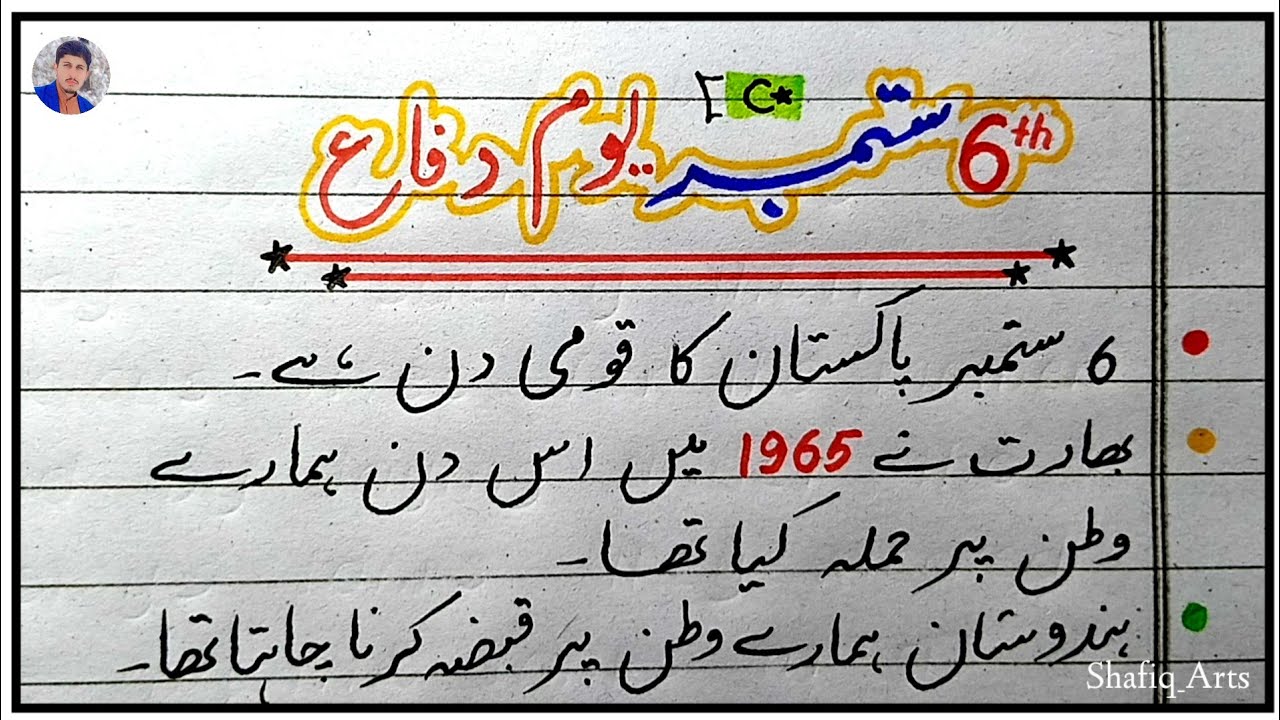 6th ستمبر یوم دفاع
6 ستمبر پاکستان کا قومی دن ہے۔
بھارت نے 1965 میں اس دن ہمارے
وطن پر حملہ کیا تھا۔
ہندوستان ہمارے وطن پر قبضہ کرنا چاہتا تھا۔
Shafiq_Arts